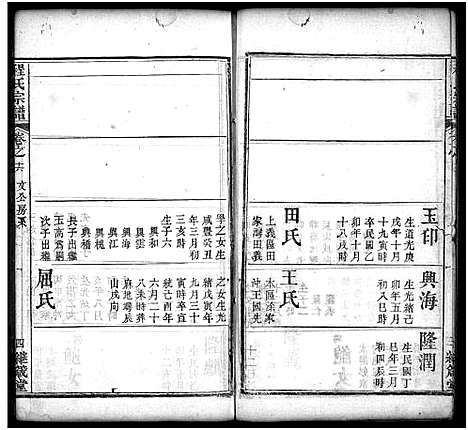 玉印
生道光庚
戌年十月
十九寅時
卒民國乙
卯年十月
十八戌時
田氏
上義區田
家灣田義
學之女生
咸豐癸丑
年三月初
三亥時
生子六
興和
興雲
興海
興江
興橋丁
長子出繼
玉高為嗣
次子出繼
興海
生光緒己
卯年五月
初八巳時
王氏
水區涂家
沖王國先
之女生光
緒戌寅年
九月三十
寅時卒宣
統己酉年
六月二十
八未時葬
山戌向
屈氏
隆潤
生民國丁
巳年三月
初四辰時
程氏宗譜
卷之十六
文公房系
四